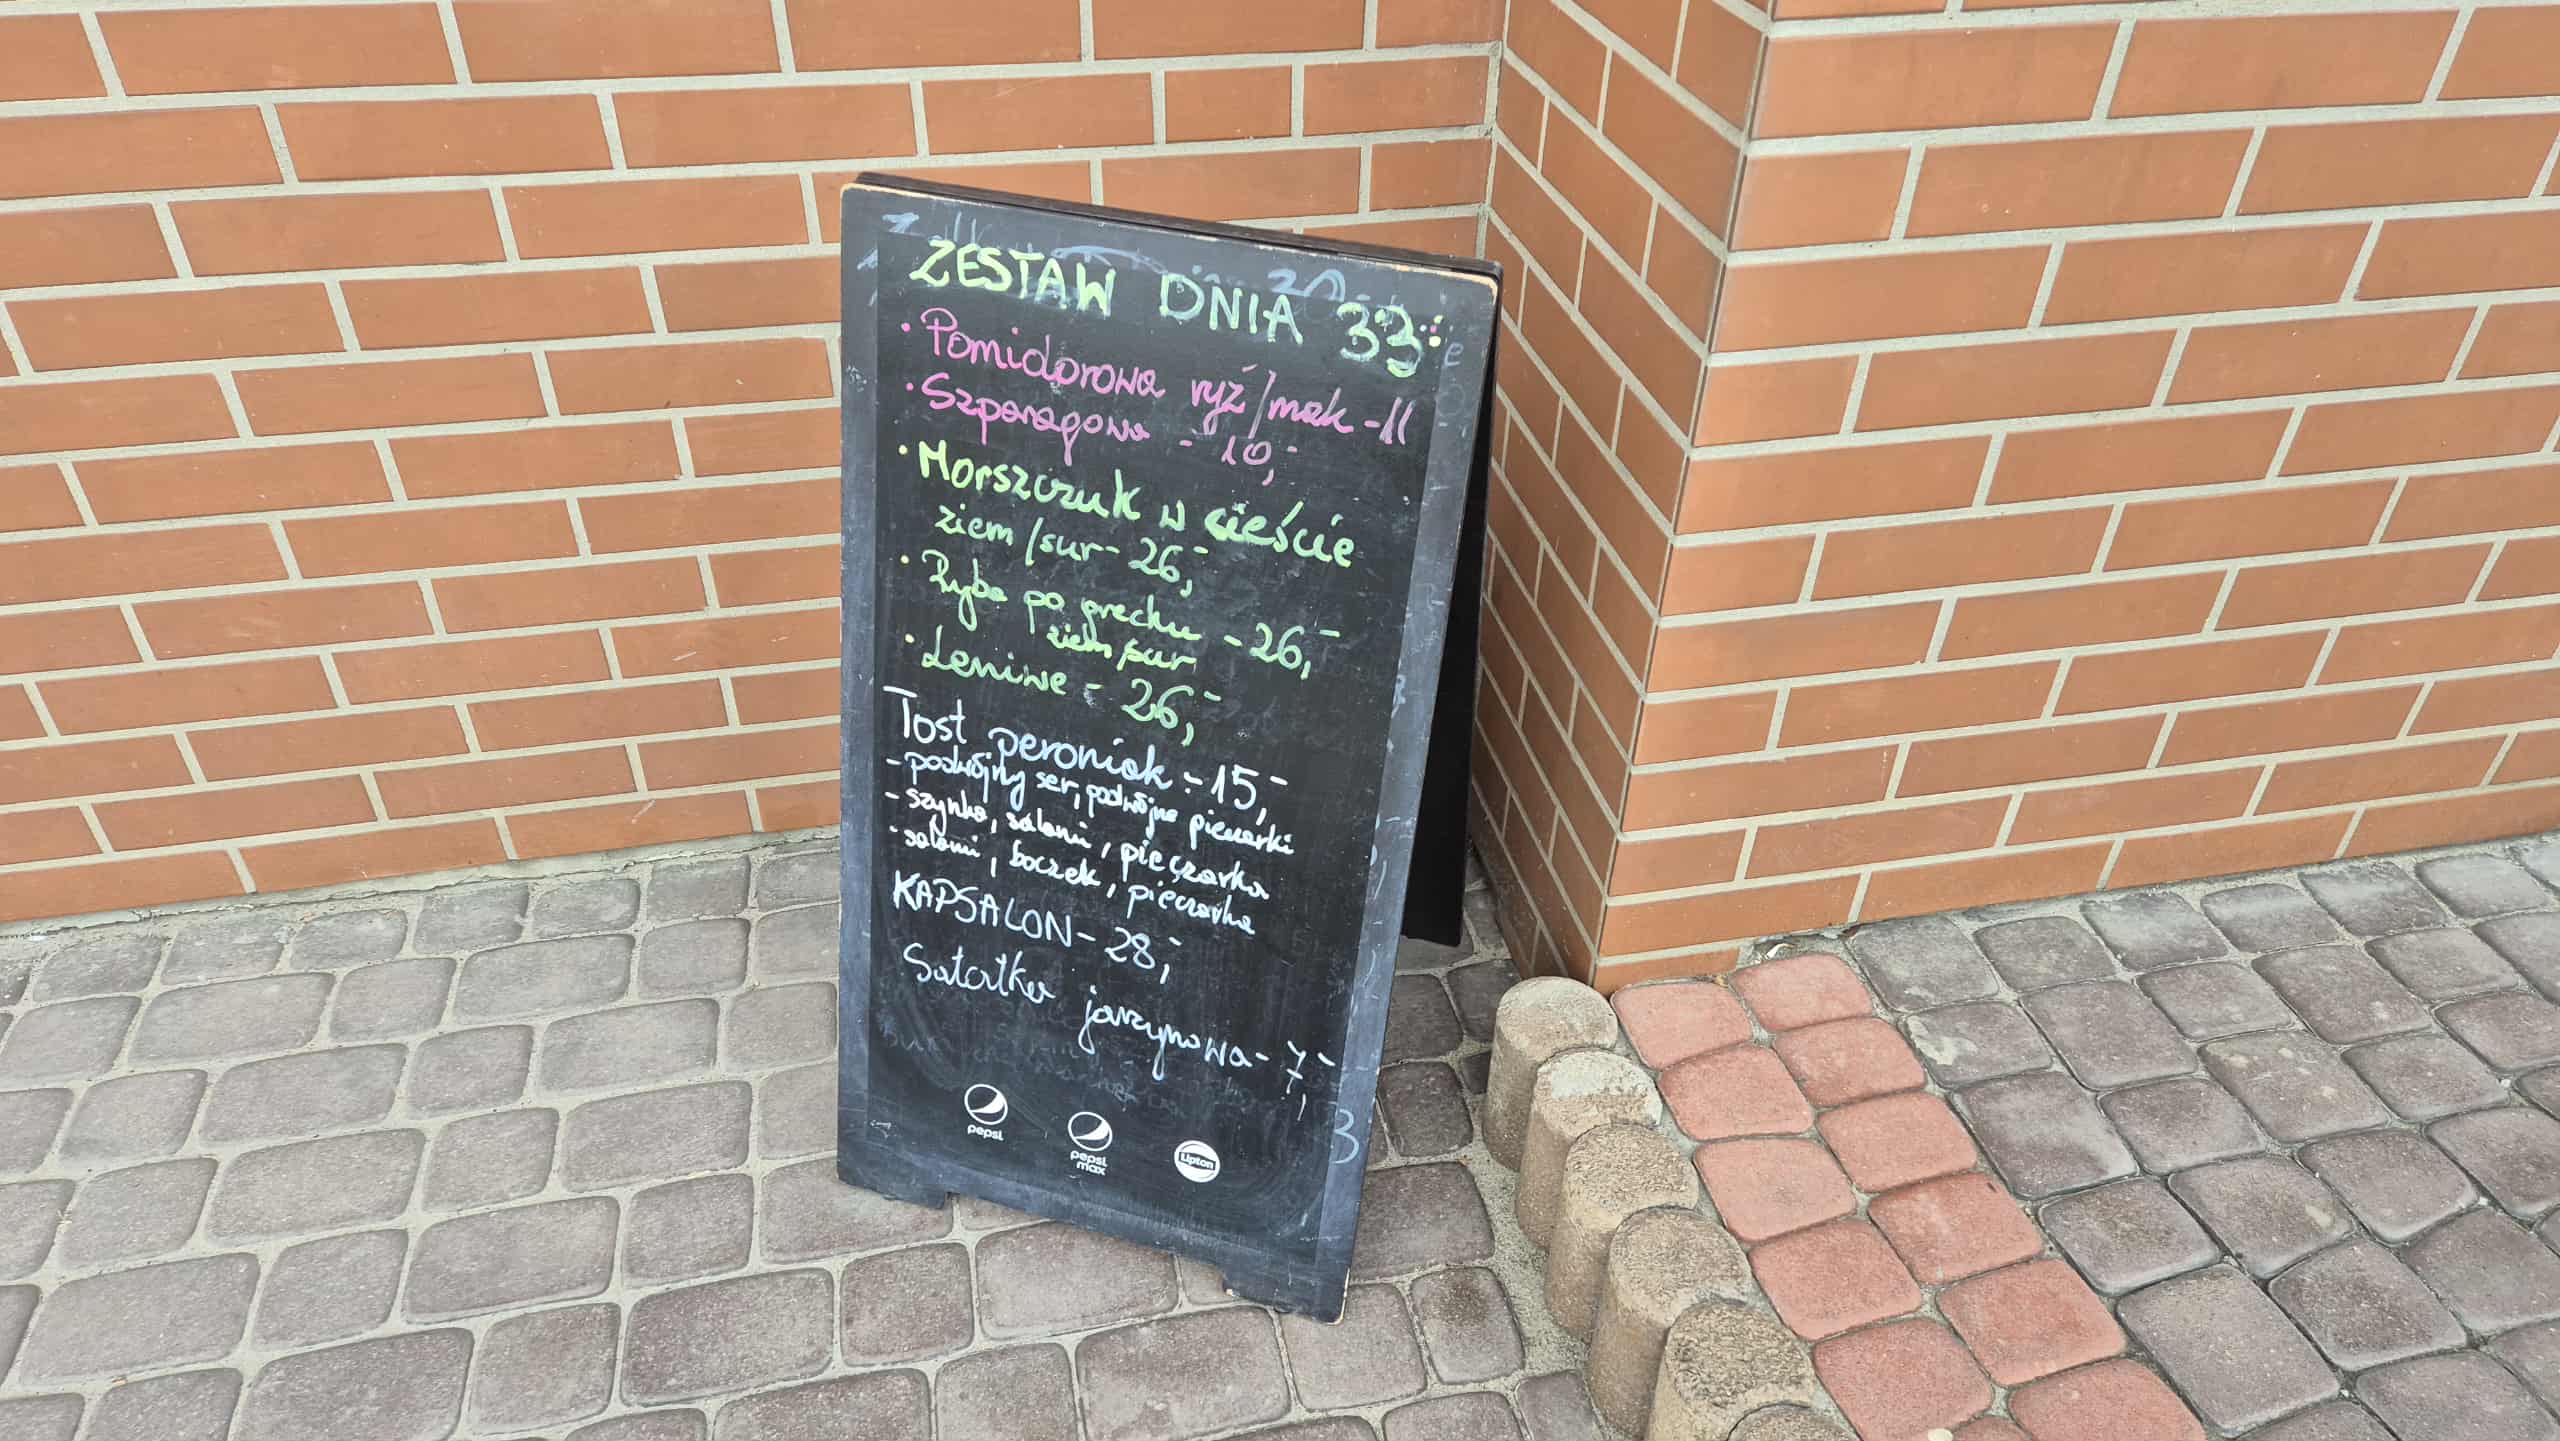 ZESTAW DNIA 33,-
• Pomidorowa ryż/mak - 11
• Szparagowa - 10,-
• Morszczuk w cieście
ziem/sur - 26,-
• Ryba po grecku - 26,-
ziem/sur
• Leniwe - 26,-
Tost peroniak - 15,-
- podwójny ser, podwójne pieczarki
- szynka, salami, pieczarka
- salami, boczek, pieczarka
KAPSALON - 28,-
Sałatka jarzynowa - 7,-
pepsi
pepsi max
Lipton